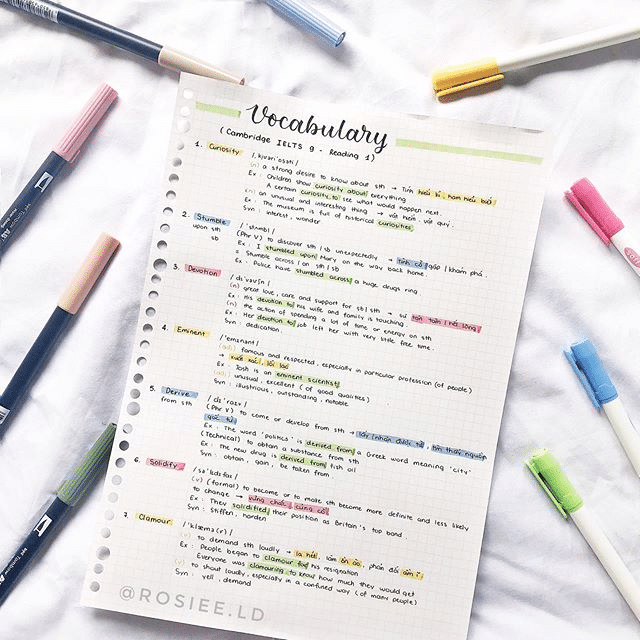 Vocabulary
(Cambridge IELTS 9 - Reading 1)
1. Curiosity
(n) a strong desire to know about sth → Tính hiếu kì, ham hiểu biết
Ex : Children show curiosity about everything
A certain curiosity to see what would happen next.
(n) an unusual and interesting thing → vật hiếm, vật quý.
Ex : The museum is full of historical curiosities
Syn : interest, wonder
2. Stumble /ˈstʌmbl/
upon sth (Phr V) to discover sth / sb unexpectedly → tình cờ gặp / khám phá.
sb Ex : I stumbled upon Mary on the way back home.
= Stumble across / on sth / sb
Ex : Police have stumbled across a huge drugs ring
3. Devotion /dɪˈvəʊʃn/
(n) great love, care and support for sb | sth → sự tận tâm / hết lòng
Ex : His devotion to his wife and family is touching.
(n) the action of spending a lot of time or energy on sth
Ex : Her devotion to job left her with very little free time.
Syn : dedication.
4. Eminent /ˈemɪnənt/
(adj) famous and respected, especially in particular profession (of people)
→ xuất sắc, lỗi lạc
Ex : Josh is an eminent scientist
(adj) unusual, excellent (of good qualities)
Syn : illustrious, outstanding, notable
5. Derive
from sth (Phr V) to come or develop from sth → lấy / nhận được từ, tìm thấy nguồn
gốc từ
Ex : The word 'politics' is derived from a Greek word meaning 'city'
(Technical) to obtain a substance from sth
Ex : The new drug is derived from fish oil
Syn : obtain, gain, be taken from
6. Solidify /səˈlɪdɪfaɪ/
(v) (formal) to become or to make sth become more definite and less likely
to change → vững chắc, củng cố
Ex : They solidified their position as Britain's top band.
Syn : Stiffen, harden
7. Clamour /ˈklæmə(r)/
(v) to demand sth loudly → la hét, làm ồn ào, phản đối ầm ĩ
Ex : People began to clamour for his resignation
Everyone was clamouring to know how much they would get
(v) to shout loudly, especially in a confused way (of many people)
Syn : yell, demand
@ROSIEE.LD